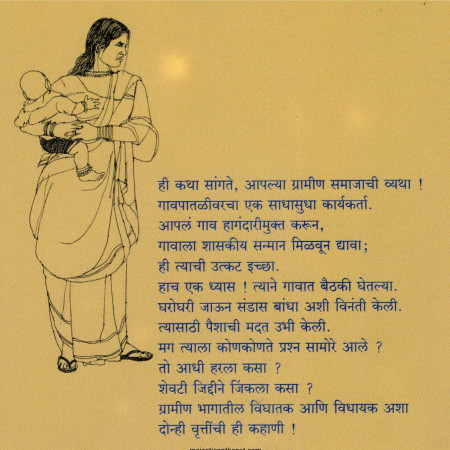 ही कथा सांगते, आपल्या ग्रामीण समाजाची व्यथा !
गावपातळीवरचा एक साधासुधा कार्यकर्ता.
आपलं गाव हागंदारीमुक्त करून,
गावाला शासकीय सन्मान मिळवून द्यावा;
ही त्याची उत्कट इच्छा.
हाच एक ध्यास ! त्याने गावात बैठकी घेतल्या.
घरोघरी जाऊन संडास बांधा अशी विनंती केली.
त्यासाठी पैशाची मदत उभी केली.
मग त्याला कोणकोणते प्रश्न सामोरे आले ?
तो आधी हरला कसा ?
शेवटी जिद्दीने जिंकला कसा ?
ग्रामीण भागातील विघातक आणि विधायक अशा
दोन्ही वृत्तींची ही कहाणी !